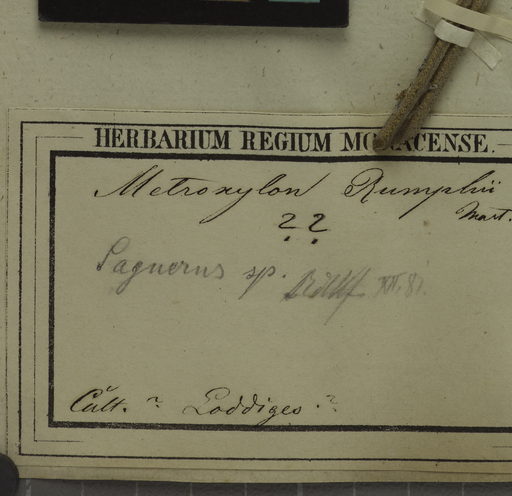 HERBARIUM REGIUM MONACENSE.
Metroxylon Rumphii
Mart.
??
Saguerus sp. XII. 81.
Cult. ? Loddiges. ?